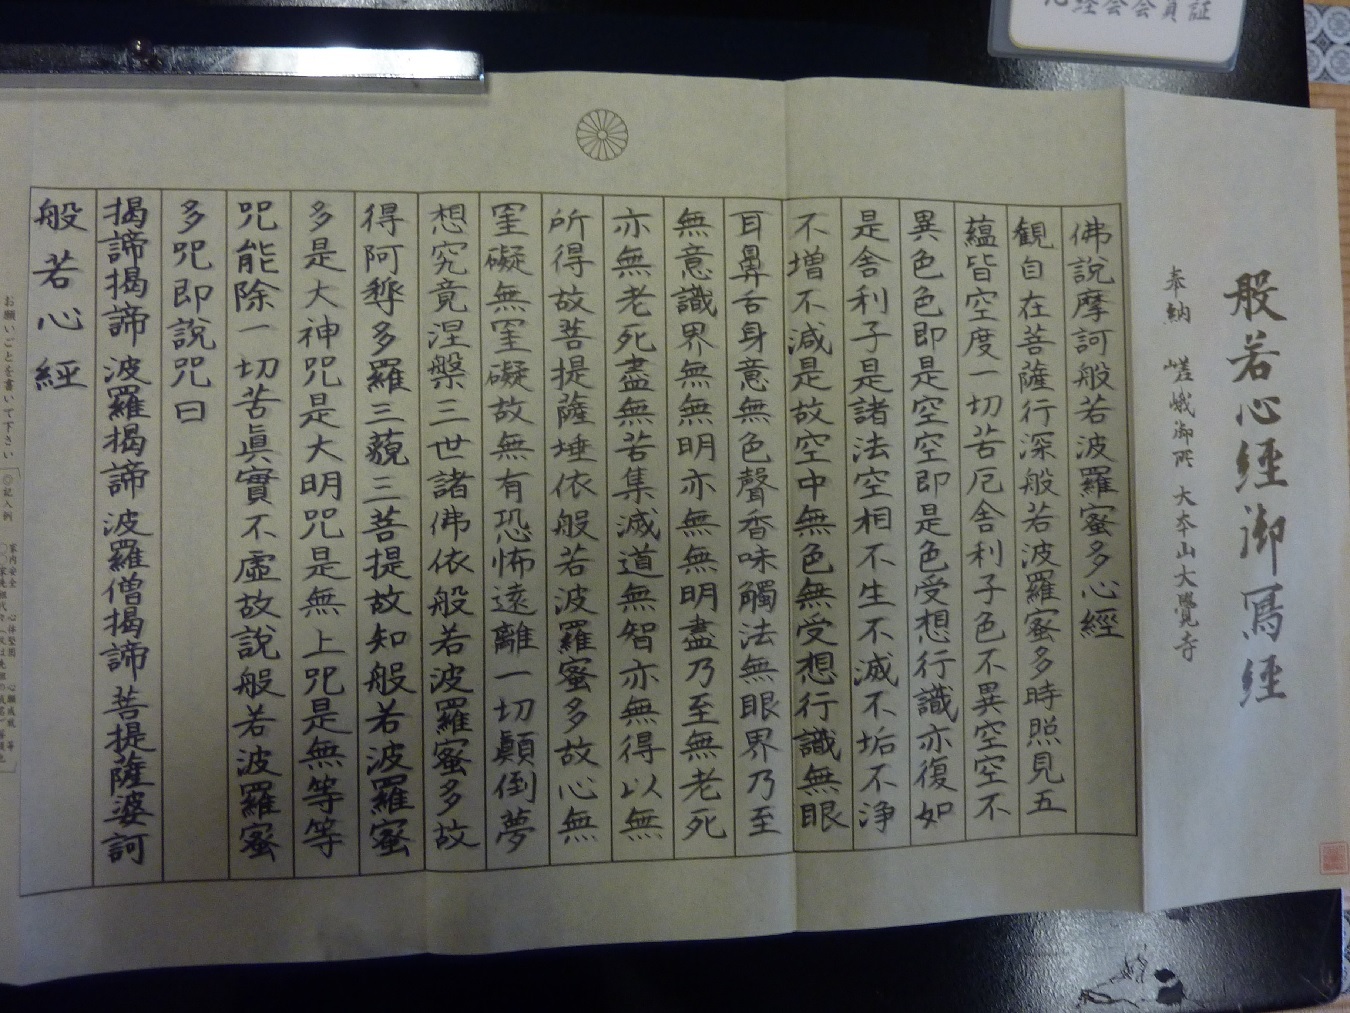 心経会会員証
般若心経御写経
奉納 嵯峨御所 大本山大覺寺
佛說摩訶般若波羅蜜多心經
観自在菩薩行深般若波羅蜜多時照見五
蘊皆空度一切苦厄舎利子色不異空空不
異色色即是空空即是色受想行識亦復如
是舎利子是諸法空相不生不滅不垢不浄
不増不減是故空中無色無受想行識無眼
耳鼻舌身意無色聲香味觸法無眼界乃至
無意識界無無明亦無無明盡乃至無老死
亦無老死盡無苦集滅道無智亦無得以無
所得故菩提薩埵依般若波羅蜜多故心無
罣礙無罣礙故無有恐怖遠離一切顚倒夢
想究竟涅槃三世諸佛依般若波羅蜜多故
得阿耨多羅三藐三菩提故知般若波羅蜜
多是大神咒是大明咒是無上咒是無等等
咒能除一切苦眞實不虛故說般若波羅蜜
多咒即說咒曰
揭諦揭諦 波羅揭諦 波羅僧揭諦 菩提薩婆訶
般若心経
お願いごとを書いて下さい
◎記入例
家内安全 心体堅固 心願成就 等